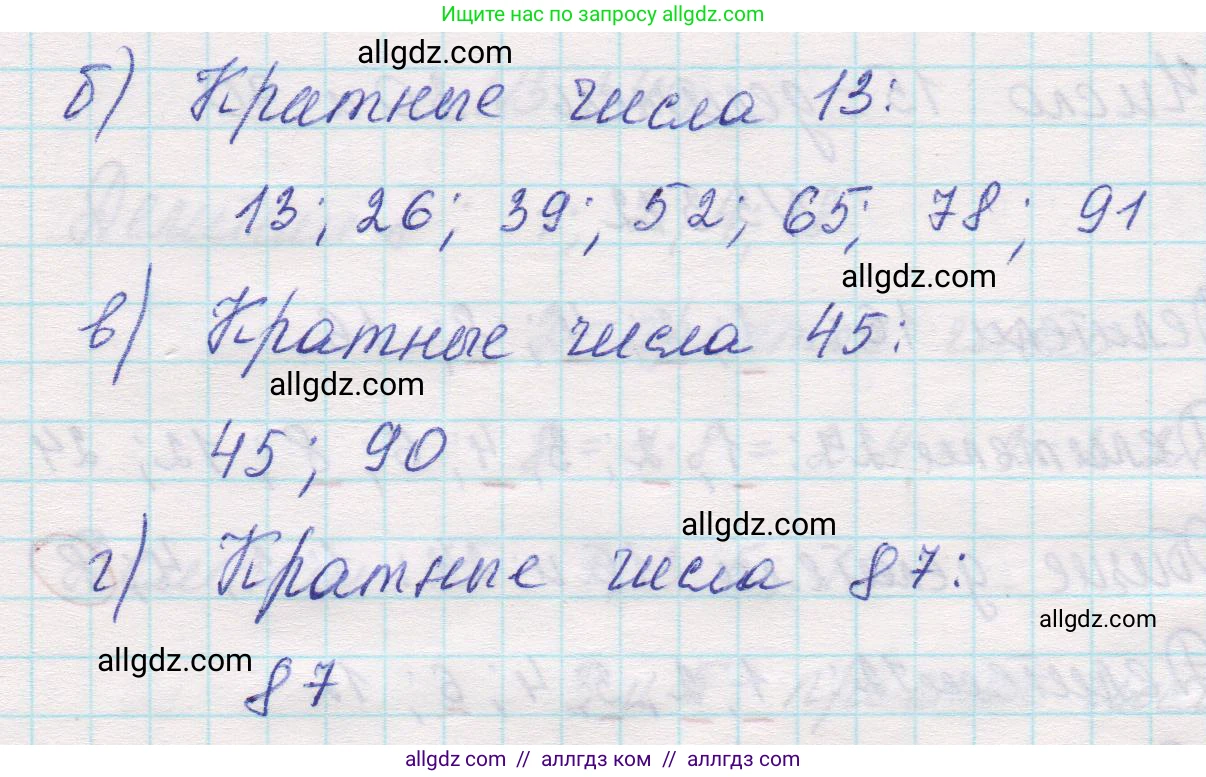 Ищите нас по запросу allgdz.com
allgdz.com
б) Кратные числа 13:
13; 26; 39; 52; 65; 78; 91
allgdz.com
в) Кратные числа 45:
allgdz.com
45; 90
allgdz.com
г) Кратные числа 87:
allgdz.com
allgdz.com
87
allgdz.com // аллгдз ком // аллгдз.com